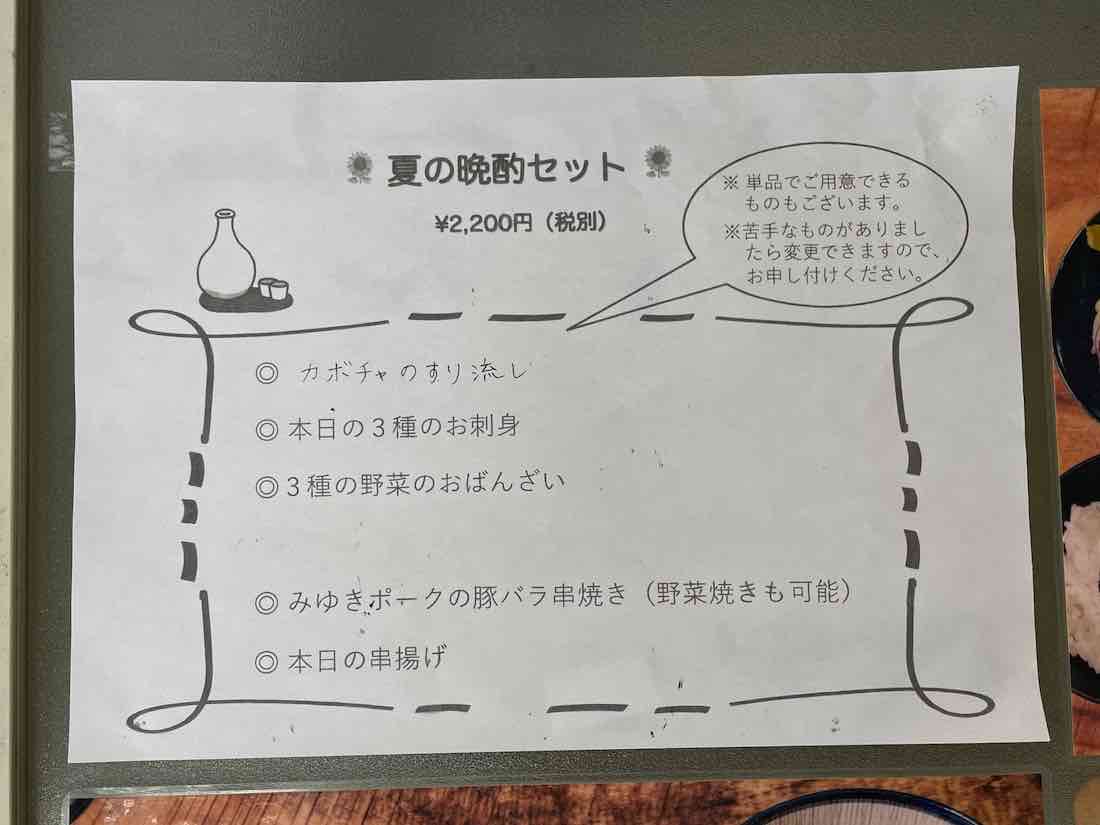 夏の晩酌セット
¥2,200円（税別）
※ 単品でご用意できる
ものもございます。
※苦手なものがありまし
たら変更できますので、
お申し付けください。
◎ カボチャのすり流し
◎ 本日の３種のお刺身
◎３種の野菜のおばんざい
◎ みゆきポークの豚バラ串焼き（野菜焼きも可能）
◎ 本日の串揚げ